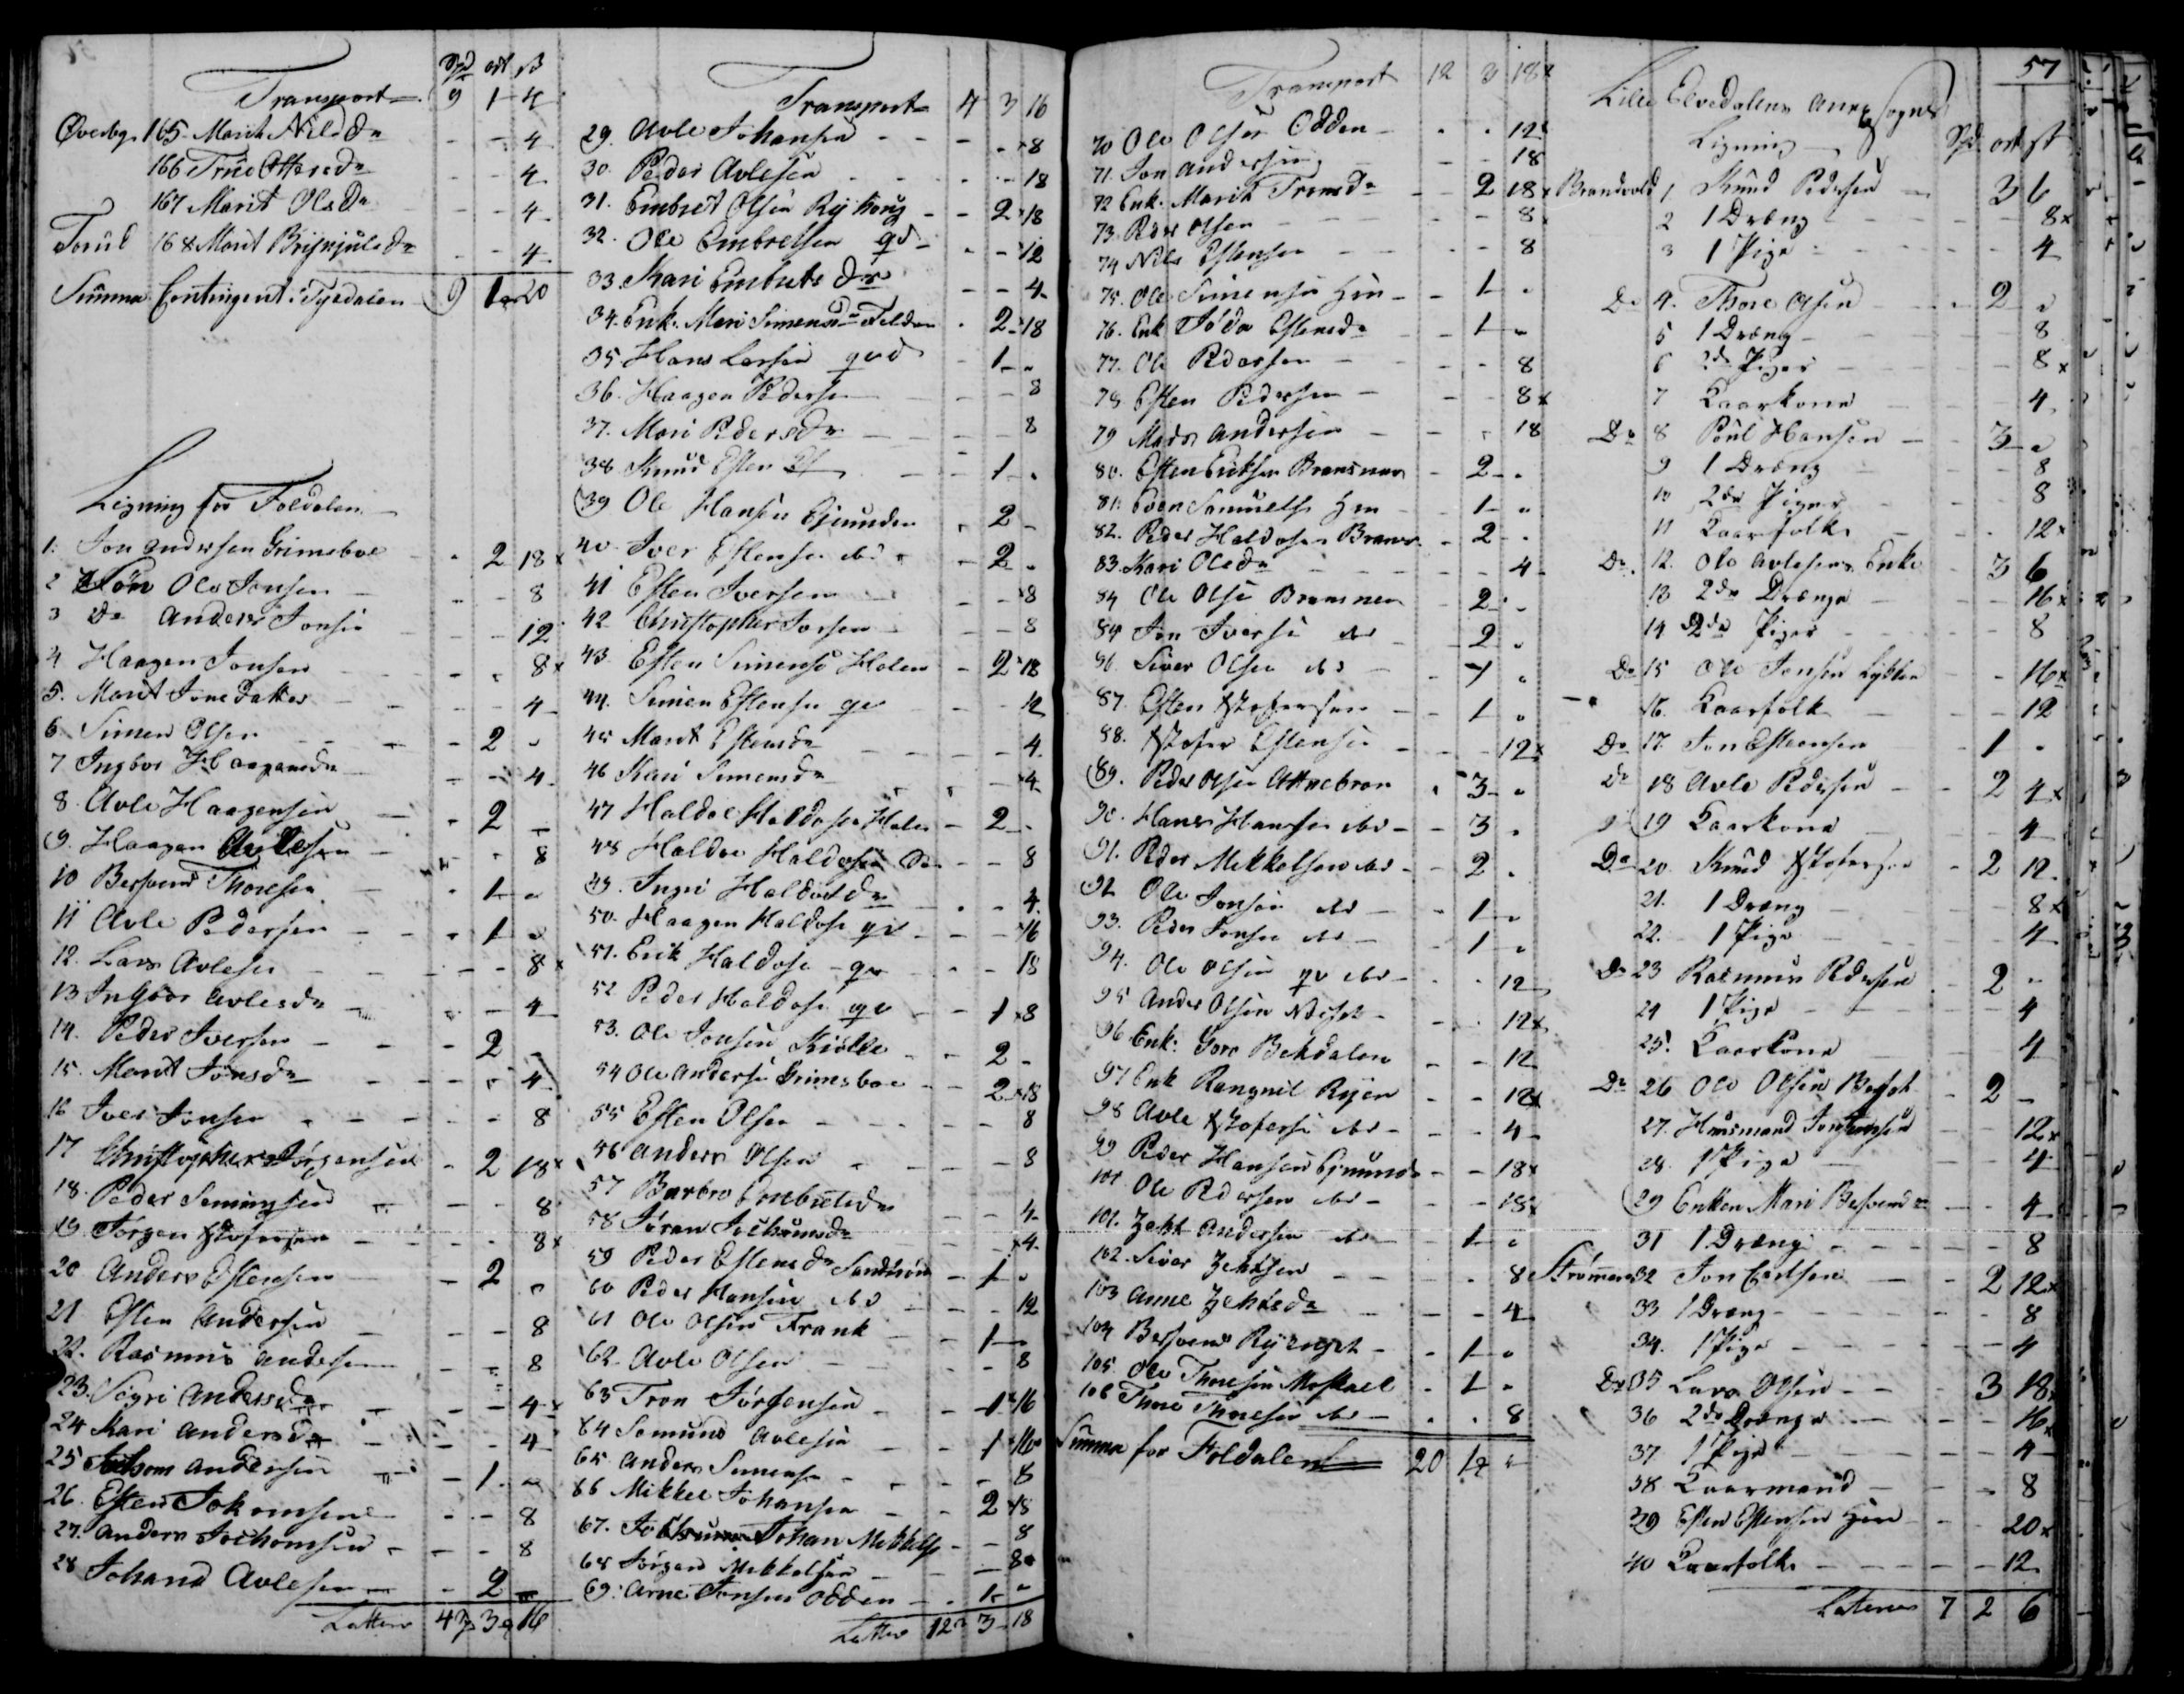 Spd ort ß
Transport 9 1 4
Øverbg. 165. Marit Nilsdr - - 4
166 True Ottersdr - - 4
167 Marit Olsdr - - 4
168 Marit Brynjulsdr - - 4
Summa Contingent i Tysdalen 9 1 20
Ligning for Foldalen
1. Jon Andersen Grimsboe - 2 18 x
2 Søn Ole Jonsen - - 8
3 Do Anders Jonsen - - 12
4 Haagen Jonsen - - 8 x
5. Marit Jonsdatter - - 4
6. Simen Olsen - 2 -
7 Ingbor Haagensdr - - 4
8. Avle Haagensen - 2 -
9. Haagen Avlesen - - 8
10 Bersvend Thoresen - 1 -
11 Avle Pedersen - 1 -
12. Lars Avlesen - - 8 x
13 Ingbor Avlesdr - - 4
14. Peder Iversen - 2 -
15. Marit Jonsdr - - 4
16 Iver Jonsen - - 8
17 Christopher Jørgensen - 2 18 x
18. Peder Semingsen - - 8
19. Jørgen Xstofersen - - 8 x
20 Anders Estensen - 2 -
21 Esten Andersen - - 8
22. Rasmus Andersen - - 8
23. Sigri Andersdr - - 4 x
24 Kari Andersdr - - 4
25 Jochom Andersen - 1 -
26. Esten Jokomsen - - 8
27. Anders Jochomsen - - 8
28 Johans Avlesen - 2 -
Latter 4 3 16
Transport 4 3 16
29. Avle Johansen - - 8
30. Peder Avlesen - - 18
31. Embret Olsen Ryhoug - 2 18
32. Ole Embretsen gd - - 12
33. Kari Embretsdr - - 4
34. Enk. Mari Simensdr - 2 18
35 Hans Larsen - 1 -
36. Haagen Pedersen - - 8
37. Mari Pedersdr - - 8
38. Knud Esten - 1 -
39 Ole Hansen Gjeunden - 2 -
40. Iver Estensen - 2 -
41 Esten Iversen - - 8
42 Christopher Iversen - - 8
43 Esten Simensen Holen - 2 18
44. Simen Estensen - - 12
45 Marit Estensdr - - 4
46 Kari Simensdr - - 4
47 Haldoe Haldosen Holen - 2 -
48 Haldoe Haldosen - - 8
49. Ingri Haldosdr - - 4
50. Haagen Haldosen - - 16
51. Erik Haldosen - - 18
52 Peder Haldosen - 1 8
53. Ole Jonsen Kiølle - 2 -
54 Ole Andersen Grimsboe - 2 18
55 Esten Olsen - - 8
56 Anders Olsen - - 8
57 Barbro Embretsdr - - 4
58 Jøran Jochumsdr - - 4
59 Peder Estensdr - 1 -
60 Peder Hansen - - 12
61 Ole Olsen Frank - 1 -
62. Avle Olsen - - 8
63 Tron Jørgensen - 1 16
64 Semund Avlesen - 1 16
65 Anders Simensen - - 8
66 Mikkel Johansen - 2 18
67. Johan Mikkelsen - - 8
68 Jørgen Mikkelsen - - 8
69. Arne Jonsen Odden - 1 -
Latter 12 3 18
Transport 12 3 18 x
70 Ole Olsen Odden - - 12
71. Jon Andersen - - 18
72 Enk. Marit Tronsdr - 2 18 x
73. Peder Olsen - - 8 x
74 Nils Estensen - - 8
75. Ole Simensen - 1 -
76. Enk Estensdr - 1 -
77. Ole Pedersen - - 8
78 Esten Pedersen - - 8 x
79 Mads Andersen - - 18
80. Esten Eriksen Brænsmoen - 2 -
81. Even Samuelsen - 1 -
82. Peder Haldosen - 2 -
83. Kari Olsdr - - 4
84 Ole Olsen - 2 -
84 Jon Iversen - 2 -
86. Siver Olsen - 1 -
87. Esten Xstofersen - 1 -
88. Xstofer Estensen - - 12 x
89. Peder Olsen Attnebroen - 3 -
90. Hans Hansen - 3 -
91. Peder Mikkelsen - 2 -
92 Ole Jonsen - 1 -
93. Peder Jonsen - 1 -
94. Ole Olsen - - 12
95 Anders Olsen - - 12 x
96 Enk. Goro Bekdalen - - 12
97 Enk Rangnil Ryen - - 12 x
98 Avle Xstofersen - - 4
99 Peder Hansen - - 18 x
100 Ole Pedersen - - 18 x
101. Andersen - 1 -
102. Siver - - 8
103 Anne - - 4
104 Bersvend - 1 -
105. Ole Thoresen Moskael - 1 -
106 Thore Thoresen - - 8
Summa for Foldalen 20 1 -
57
Lille Elvedalens Anex Sogns
Ligning Spd. ort ß
Brandvold 1 Knud Pedersen 3 6
2 1 Dreng - 8 x
3 1 Pige - 4
Do 4. Thore Olsen - 2 -
5 1 Dreng - 8
6 2de Piger - 8 x
7 Kaarkone - 4
Do 8 Poul Hansen - 3 -
9 1 Dreng - 8
10 2de Piger - 8
11 Kaarfolk - 12 x
Do. 12. Ole Avlesens Enke 3 6
13 2de Drenge - 16 x
14 2de Piger - 8
Do 15 Ole Jonsen - 16 x
16. Kaarfolk - 12
Do 17. Jon Estensen 1 -
Do 18 Avle Pedersen - 2 4 x
19 Kaarkone - 4
Do 20. Knud Xstofersen - 2 12
21. 1 Dreng - 8 x
22. 1 Pige - 4
Do 23 Rasmus Pedersen - 2 -
24 1 Pige - 4
25. Kaarkone - 4
Do 26 Ole Olsen - 2 -
27. Huusmand - 12 x
28. 1 Pige - 4
29 Enken Mari - 4
31 1 Dreng - 8
32 Jon - 2 12 x
33 1 Dreng - 8
34. 1 Pige - 4
Do 35 Lars Olsen - 3 18
36 2de Drenge - 16 x
37 1 Pige - 4
38 Kaarmand - 8
39 Esten Estensen - 20 x
40 Kaarfolk - 12
Lateres 7 2 6